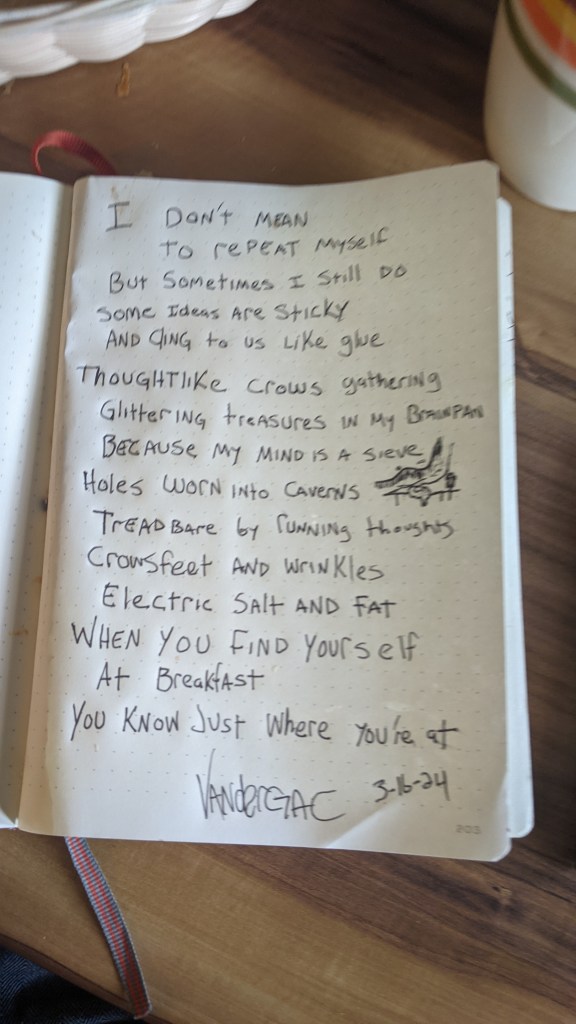 I DON't MEAN
TO rePEAT MYself
But Sometimes I Still DO
Some Ideas Are Sticky
AND CliNG to us Like glue
THOUGHT liKe Crows gathering
GlitterING treasures IN My BRAINPAN
BECAUSE MY MIND IS A Sieve
Holes WORN INto CAVERNS
TREADBare by rUNNING thoughts
Crowsfeet AND WriNKles
Electric SAlt AND FAT
WHEN YOU FIND Yourself
At BreakfAst
YOU KNOW Just Where You're at
VANderGAC 3-16-24
203